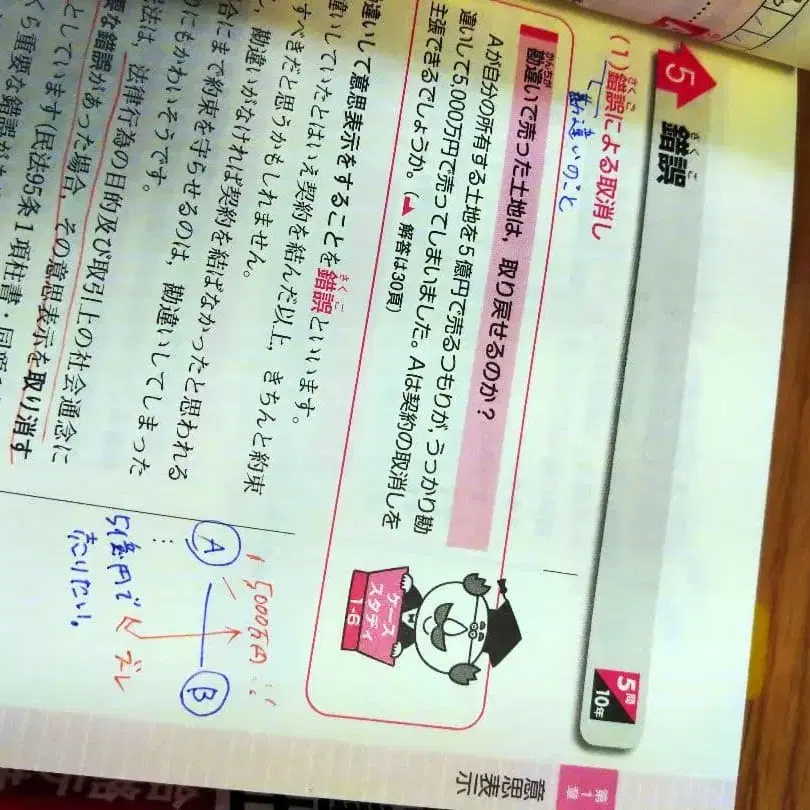 5 錯誤
さくご
5問
10年
(1) 錯誤による取消し
さくご
勘違いのこと
勘違いで売った土地は，取り戻せるのか？
かんちが
Aが自分の所有する土地を5億円で売るつもりが，うっかり勘
違いして5,000万円で売ってしまいました。Aは契約の取消しを
主張できるでしょうか。（ 解答は30頁）
ケース
スタディ
1-6
違いして意思表示をすることを錯誤といいます。
さくご
違いしていたとはいえ契約を結んだ以上，きちんと約束
すべきだと思うかもしれません。
，勘違いがなければ契約を結ばなかったと思われる
合にまで約束を守らせるのは，勘違いしてしまった
りにもかわいそうです。
法は，法律行為の目的及び取引上の社会通念に
要な錯誤があった場合，その意思表示を取り消す
としています（民法95条1項柱書・
5000万円
A
B
ズレ
5億円で
売りたい。
第1章
意思表示